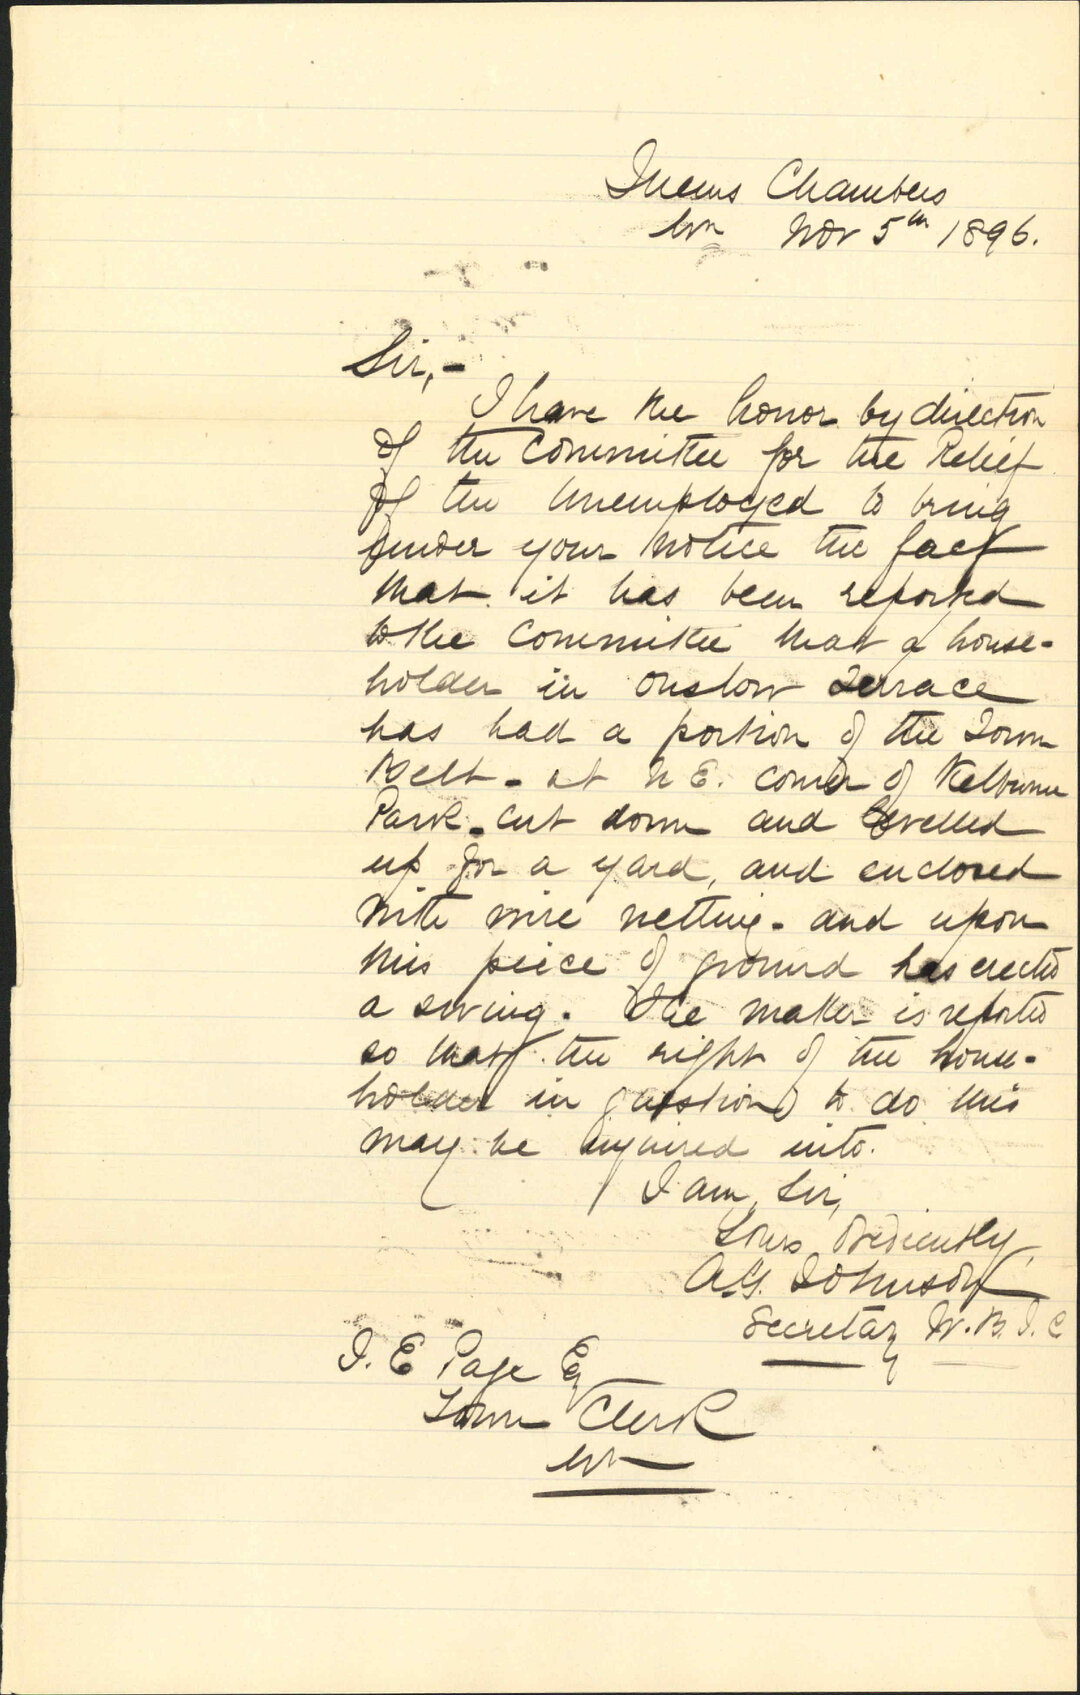 Chambers
Wn Nov 5th 1896.
Sir,-
I have the honor by direction
of the Committee for the Relief
of the Unemployed to bring
under your notice the fact
that it has been reported
to the Committee that a house-
holder in Onslow Terrace
has had a portion of the Town
Belt - at N E. corner of Kelburne
Park - cut down and levelled
up for a yard, and enclosed
with wire netting - and upon
this peice of ground has erected
a swing. The matter is reported
so that the right of the house-
holder in question to do this
may be inquired into.
I am, Sir,
Yours Obediently,
A.G. Johnson
Secretary W.B.I.C
J. E Page Esq
Town Clerk
Wn